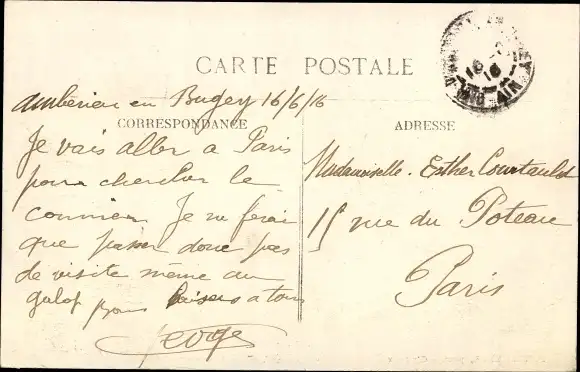 CARTE POSTALE
Ambérieu en Bugey 16/6/16
CORRESPONDANCE
ADRESSE
Je vais aller à Paris
pour chercher le
courrier. Je ne ferai
que passer donc pas
de visite même au
galop baisers a tous
Mademoiselle. Esther Courtauld
15 rue du Poteau
Paris